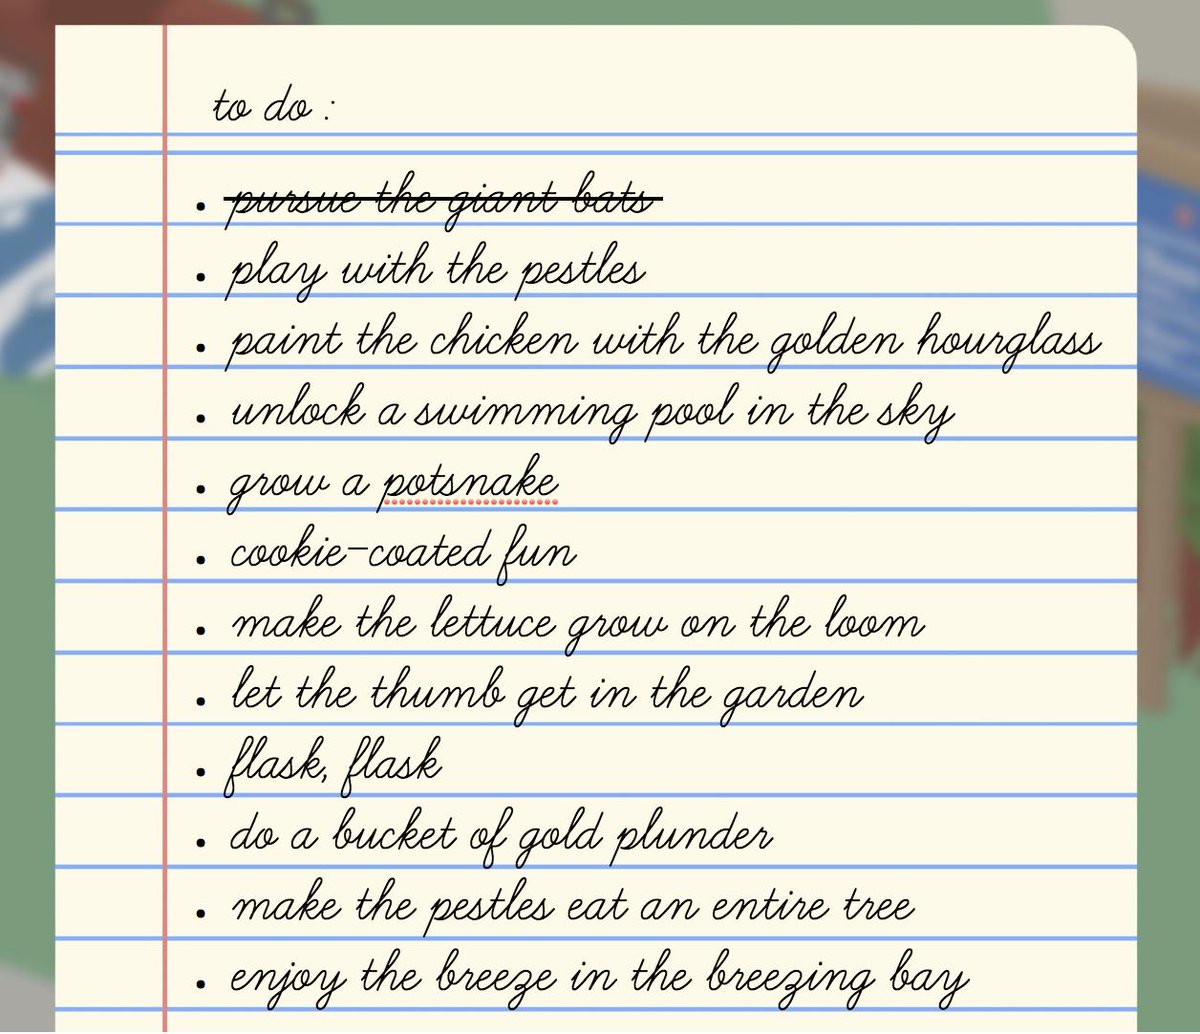 to do :
• pursue the giant bats
• play with the pestles
• paint the chicken with the golden hourglass
• unlock a swimming pool in the sky
• grow a potsnake
• cookie-coated fun
• make the lettuce grow on the loom
• let the thumb get in the garden
• flask, flask
• do a bucket of gold plunder
• make the pestles eat an entire tree
• enjoy the breeze in the breezing bay